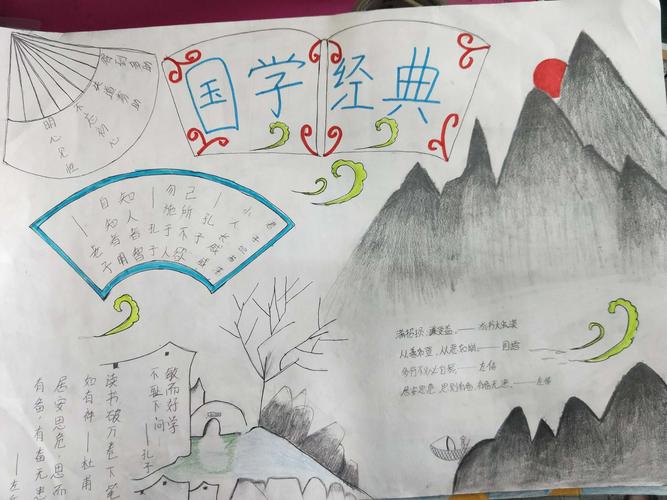 国学经典
失道寡助
不忘初心
明心见性
小人长戚戚
孔子
己所不欲
勿施于人
——孔子
知人者智
自知者明
老子
满招损,谦受益。——尚书大禹谟
从善如登,从恶如崩。——国语
多行不义必自毙。——左传
居安思危,思则有备,有备无患。——左传
敏而好学
不耻下问
——孔子
读书破万卷下笔
如有神——杜甫
居安思危,思而
有备,有备无患
——左